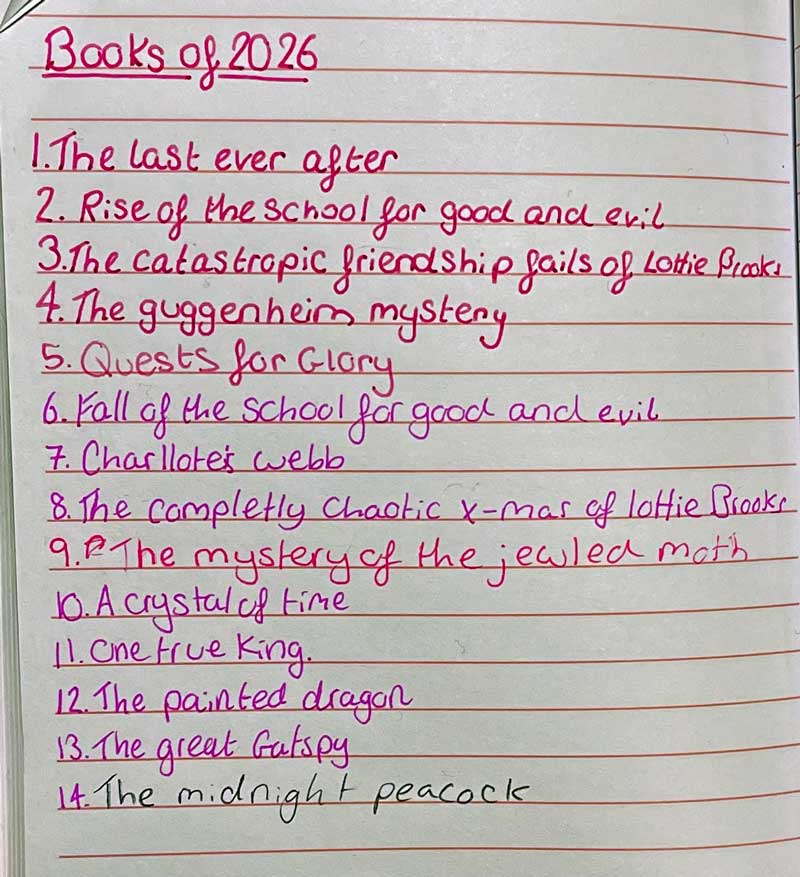 Books of 2026
1. The last ever after
2. Rise of the school for good and evil
3. The catastropic friendship fails of Lottie Brooks
4. The guggenheim mystery
5. Quests for Glory
6. Fall of the school for good and evil
7. Charllote's webb
8. The completly chaotic x-mas of lottie Brooks
9. The mystery of the jewled moth
10. A crystal of time
11. One true King.
12. The painted dragon
13. The great Gatspy
14. The midnight peacock